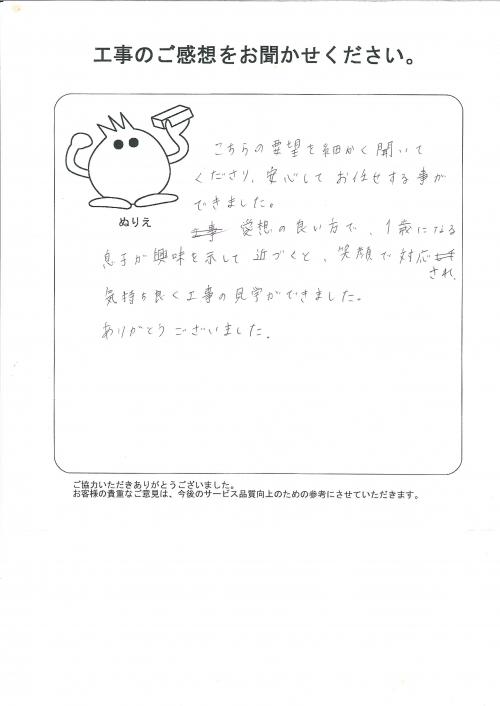 工事のご感想をお聞かせください。
ぬりえ
こちらの要望を細かく聞いて
くださり、安心してお任せする事が
できました。
愛想の良い方で、1歳になる
息子が興味を示して近づくと、笑顔で対応
され、
気持ち良く工事の見学ができました。
ありがとうございました。
ご協力いただきありがとうございました。
お客様の貴重なご意見は、今後のサービス品質向上のための参考にさせていただきます。